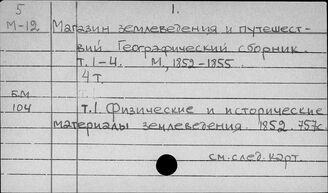 5 1.
М-12 Магазин землеведения и путешест-
вий Географический сборник.
т. 1-4. М., 1852-1855.
4 т.
Б.М.
104 т. 1. Физические и исторические
материалы землеведения. 1852. 757с
см. след. карт.